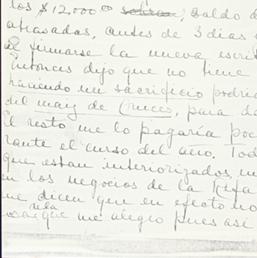 los $12,000 00 saldo d
atrasadas, antes de 3 dias
al firmarse la nueva escrit
Entonces dijo que no tiene
haciendo un sacrificio podria
del may de Cruces, para
El resto me lo pagaria poc
rante el curso del año. Tod
que estan interiorizados, m
en los negocios de la Rifa
me dicen que en efecto no
nada
que me alegro pues asi